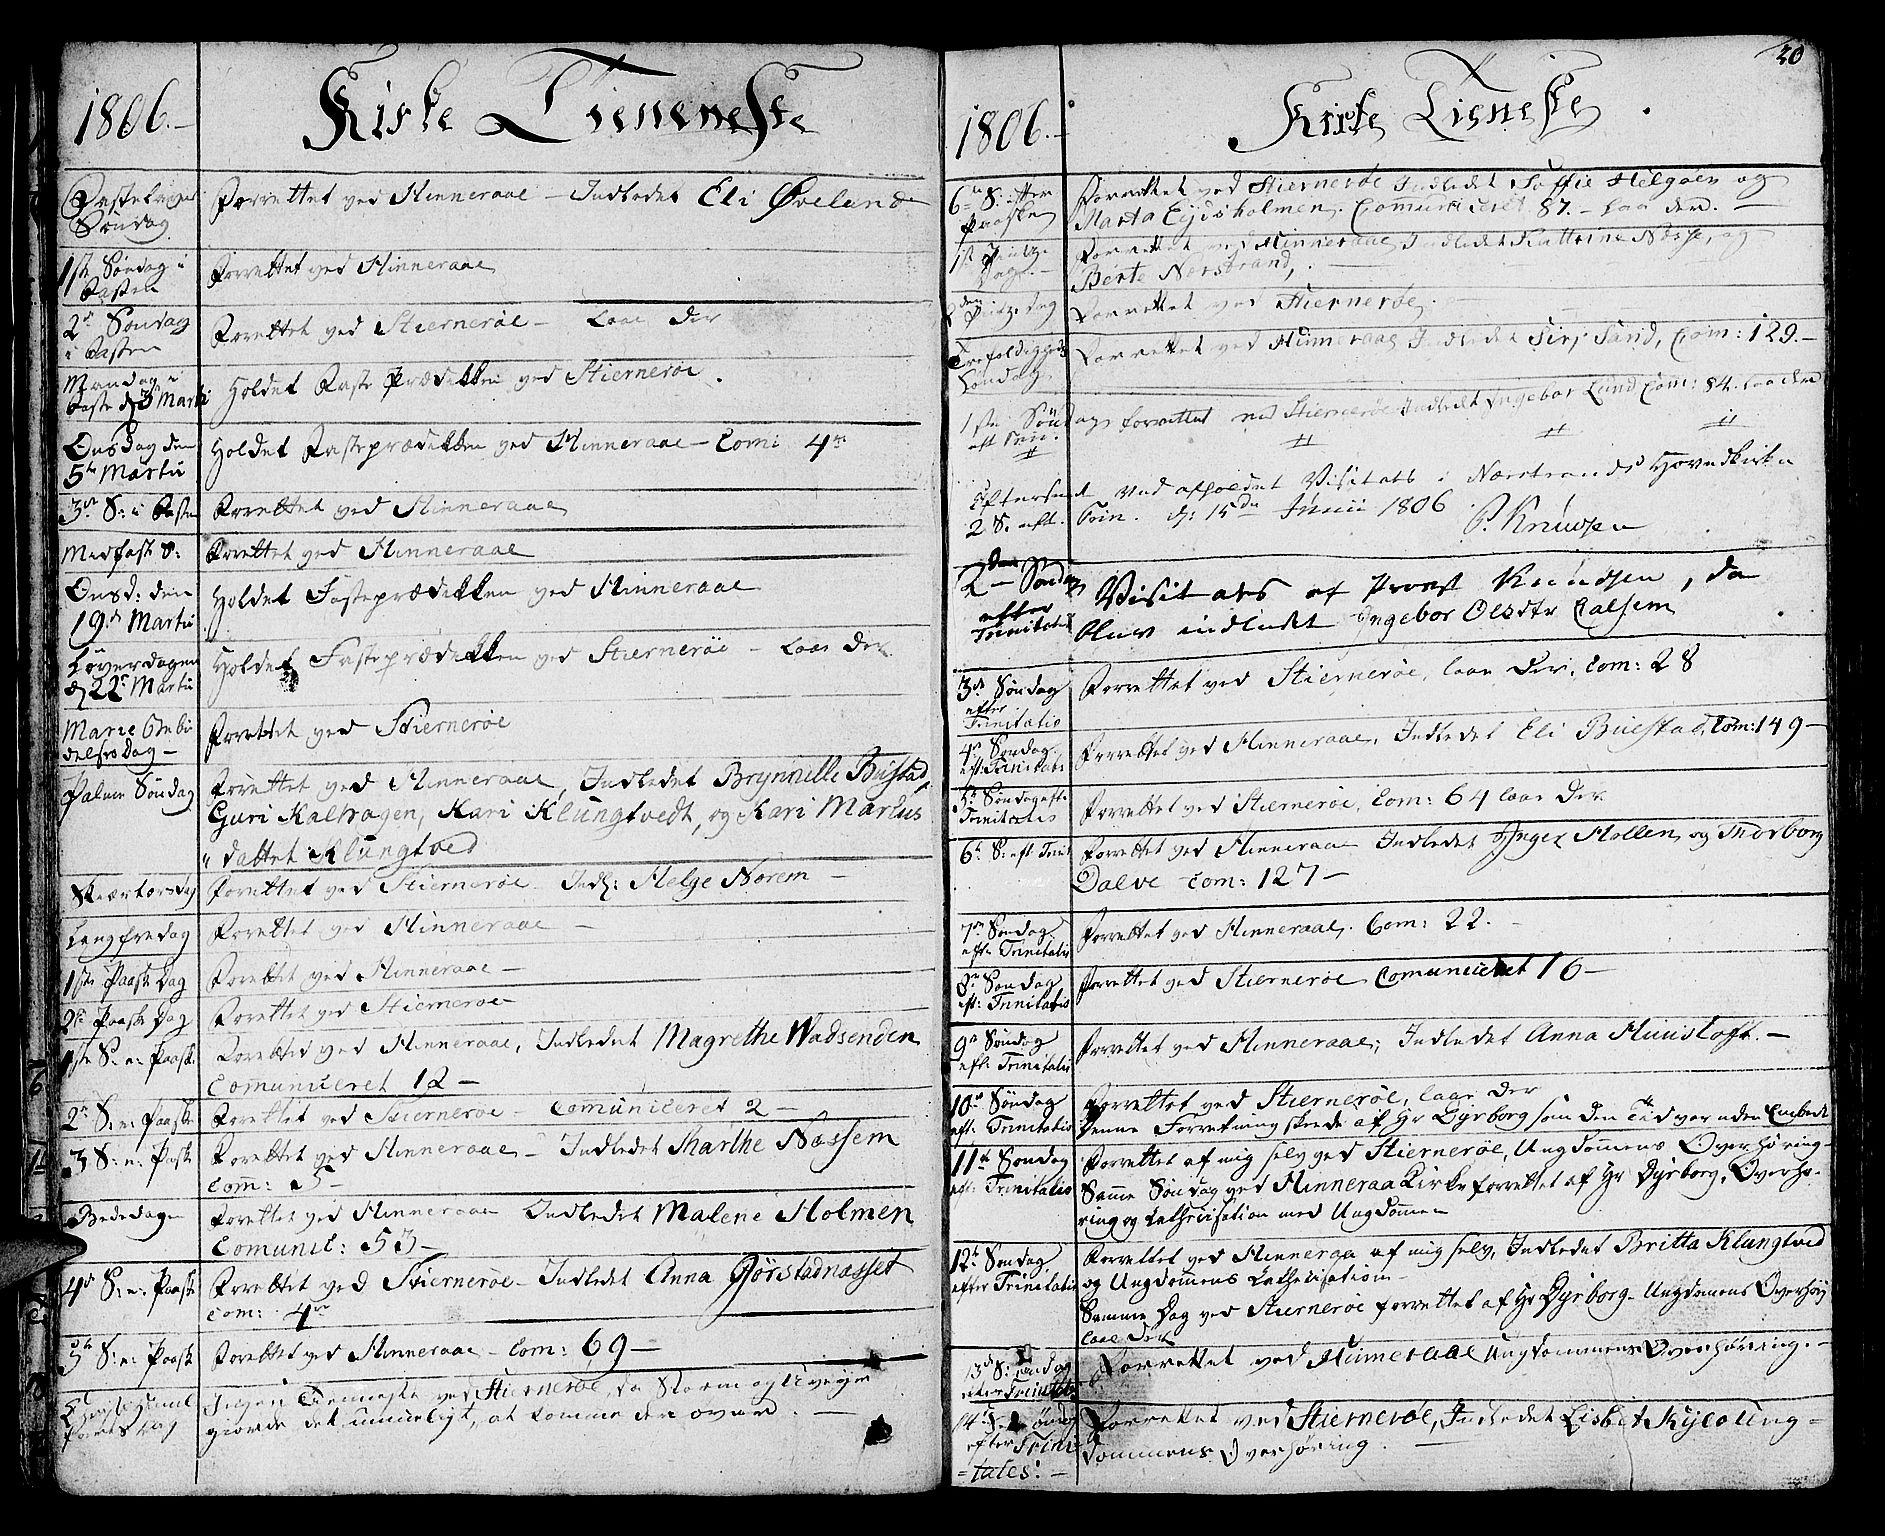 1806.-
Kirke Tienneste
Fastelavns Søndag
Forrettet ved Hinneraae - Indledet Eli Øveland
1ste Søndag i Fasten
Forrettet ved Hinneraae
2den Søndag i Fasten
Forrettet ved Stiernerøe - laae der
Mandag i Faste d 3 Marti
Holdet Faste Prædikken ved Stiernerøe.
Onsdag den 5te Martii
Holdet Fasteprædikken ved Hinneraae - Comi 4re
3die S: i Faste
Forrettet ved Hinneraae
Midfaste S:
Forrettet ved Hinneraae
Onsd: den 19de Martii
Holdet Fasteprædikken ved Hinneraae
Løverdagen d 22de Martii
Holdet Fasteprædikken ved Stiernerøe - laae der
Marie Bebudelses Dag -
Forrettet ved Stiernerøe
Palme Søndag
Forrettet ved Hinneraae, Indledet Brynnille Buestad,
Guri Kalhagen, Kari Klungtvedt, og Kari Martus
" dattet Klungtved
Skiærtorsdag
Forettet ved Stiernerøe - Indl: Helge Norem -
Langfredag
Forettet ved Hinneraae -
1ste Paaske Dag
Forettet ved Hinneraae -
2den Paaske Dag
Forettet ved Stiernerøe
1ste S: e: Paaske
Forettet ved Hinneraae, Indledet Magrethe Wadsenden
Comuniceret 12 -
2den S: e: Paaske
Forettet ved Stiernerøe - Comuniceret 2 -
3 S: e: Paaske
Forettet ved Hinneraae - Indledet Marthe Næssem
Com: 5 -
Bededagen
Forettet ved Hinneraae Indledet Malene Holmen
Comunic: 53 -
4de S: e: Paaske
Forettet ved Stiernerøe - Indledet Anna Gørstadnæsset
Com: 4re
5te S: e: Paaske
Forettet ved Hinneraae - Com: 69 -
Christi Himmelfarts Dag
Ingen Tienneste ved Stiernerøe, da Storm og Uveyer
giorde det umueligt, at komme der over. -
20
1806.-
Kirke Tieneste
6te S: efter Paaske
Forrettet ved Stiernerøe Indledet Saffie Helgøen og
Marta Eydsholmen. Comuniceret 87. - laae der. -
1ste Pintze Dag. -
Forrettet ved Hinneraae Indledet Kattrine Næsse, og
Berte Nerstrand,
2den Pintzedag
Forrettet ved Stiernerøe. -
Trefoldigheds Søndag
Forrettet ved Hinneraae Indledet Siri Sand, Com: 129. -
1ste Søndag eft Trin.
forrettet ved Stiernerøe Indledet Ingebor Lund Com: 84. laae der
Efterseet ved afholdet Visitats i Nærstrands Hovedkirke
2 S. eft. Trin. d: 15de Junii 1806 P. Knudsen
2den Søndag efter Trinitatis
Visitats af Provst Knudsen, da
blev indledet Ingebor Olsdtr Calsem
3de Søndag efter Trinitatis
Forrettet ved Stiernerøe, laae der, Com: 28
4de Søndag eft: Trinitatis
Forrettet ved Hinneraae, Indledet Eli Buestad, Com: 149 -
5te Søndag eft: Trinitatis
Forrettet ved Stiernerøe, Com: 64 laae der
6te S: eft Trinit
Forrettet ved Hinneraae Indledet Inger Hollen og Thorborg
Dalve Com: 127 -
7de Søndag eft: Trinitatis
Forrettet ved Hinneraae. Com: 22. -
8de Søndag eft: Trinitatis
Forrettet ved Stiernerøe Comuniceret 16 -
9de Søndag eft: Trinitatis
Forrettet ved Hinneraae; Indledet Anna Huusloft. -
10de Søndag eft: Trinitatis
Forrettet ved Stiernerøe, laae der
Denne Forretning skeede af Hr Dyrborg som den Tid var uden Embede
11te Søndag eft: Trinitatis
Forrettet af mig selv ved Stiernerøe, Ungdommens Overhøring -
Samme Søndag ved Hinneraa Kirke forrettet af Hr Dyrborg, Overhø-
ring og Cathecisation med Ungdommen
12te Søndag efter Trinitatis
Forrettet ved Hinneraa af mig selv, Indledet Britta Klungtved
og Ungdommens Cathecisation -
Samme Dag ved Stiernerøe forrettet af Hr Dyrborg - Ungdomens Overhøri
laae der
13de Søndag efter Trinitatis
Forrettet ved Hinneraae Ungdommens Overhøring. -
14de Søndag efter Trinitates! -
Forrettet ved Stiernerøe, Indledet Lisbet Kyco Ung-
dommens Overhøring. -